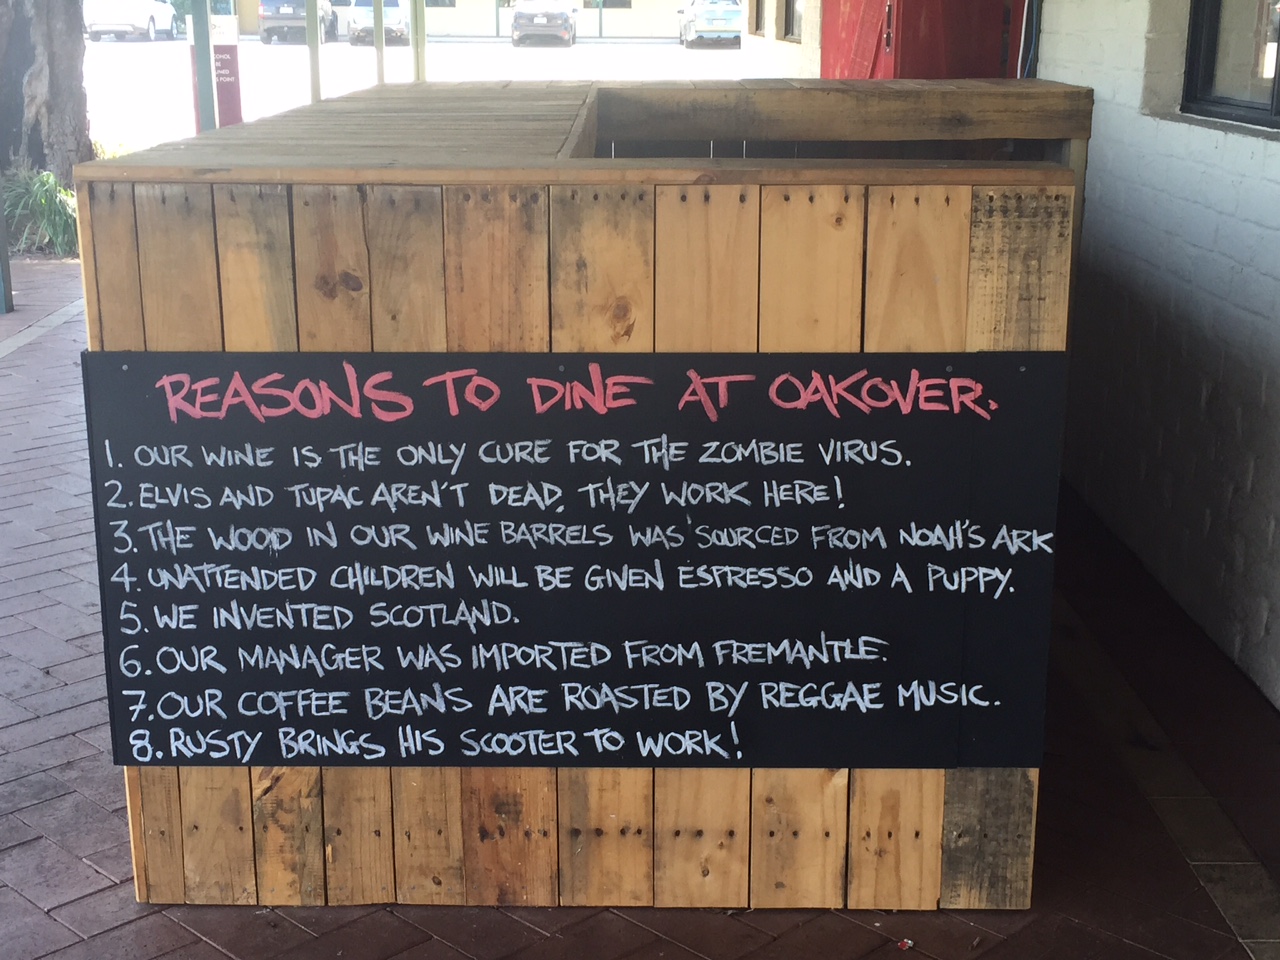 REASONS TO DINE AT OAKOVER.
1. OUR WINE IS THE ONLY CURE FOR THE ZOMBIE VIRUS.
2. ELVIS AND TUPAC AREN'T DEAD, THEY WORK HERE!
3. THE WOOD IN OUR WINE BARRELS WAS SOURCED FROM NOAH'S ARK
4. UNATTENDED CHILDREN WILL BE GIVEN ESPRESSO AND A PUPPY.
5. WE INVENTED SCOTLAND.
6. OUR MANAGER WAS IMPORTED FROM FREMANTLE.
7. OUR COFFEE BEANS ARE ROASTED BY REGGAE MUSIC.
8. RUSTY BRINGS HIS SCOOTER TO WORK!